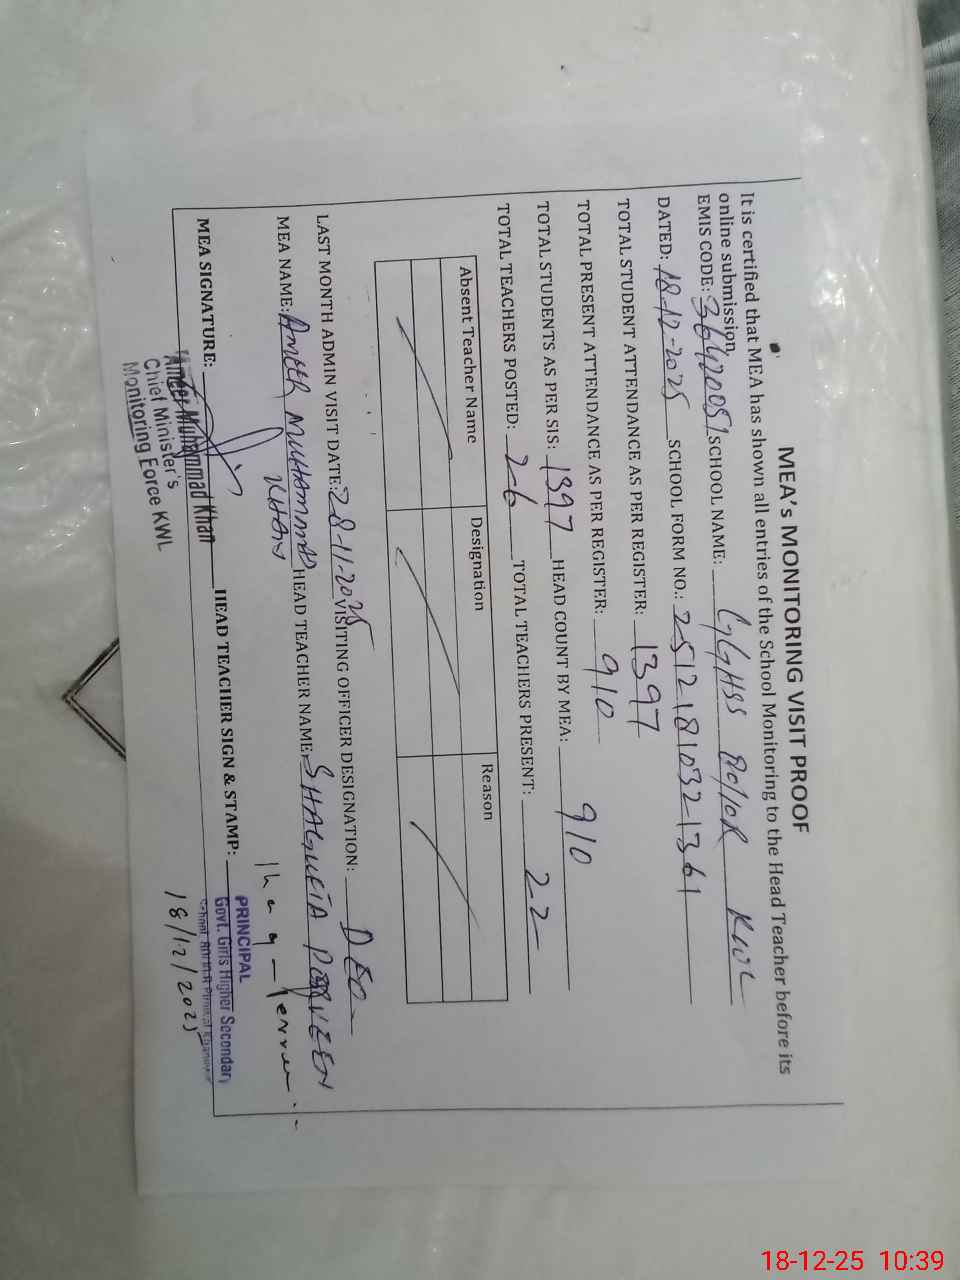 MEA's MONITORING VISIT PROOF
It is certified that MEA has shown all entries of the School Monitoring to the Head Teacher before its
online submission.
EMIS CODE: 36420051 SCHOOL NAME: GGHSS 80/10R KWL
DATED: 18-12-2025 SCHOOL FORM NO.: 2512181032-1361
TOTAL STUDENT ATTENDANCE AS PER REGISTER: 1397
TOTAL PRESENT ATTENDANCE AS PER REGISTER: 910
TOTAL STUDENTS AS PER SIS: 1397 HEAD COUNT BY MEA: 910
TOTAL TEACHERS POSTED: 26 TOTAL TEACHERS PRESENT: 22
Absent Teacher Name Designation Reason
LAST MONTH ADMIN VISIT DATE: 28-11-2025 VISITING OFFICER DESIGNATION: DEO
MEA NAME: AMEER MUHAMMAD KHAN HEAD TEACHER NAME: SHAGUFTA PARVEEN
MEA SIGNATURE: HEAD TEACHER SIGN & STAMP:
Ameer Muhammad Khan
Chief Minister's
Monitoring Force KWL
PRINCIPAL
Govt. Girls Higher Secondary
School
18/12/2025
18-12-25 10:39